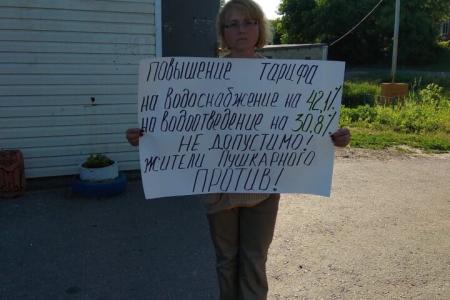 ПОВЫШЕНИЕ ТАРИФА
НА ВОДОСНАБЖЕНИЕ НА 42,1%
НА ВОДООТВЕДЕНИЕ НА 30,8%
НЕ ДОПУСТИМО!
ЖИТЕЛИ ПУШКАРНОГО
ПРОТИВ!